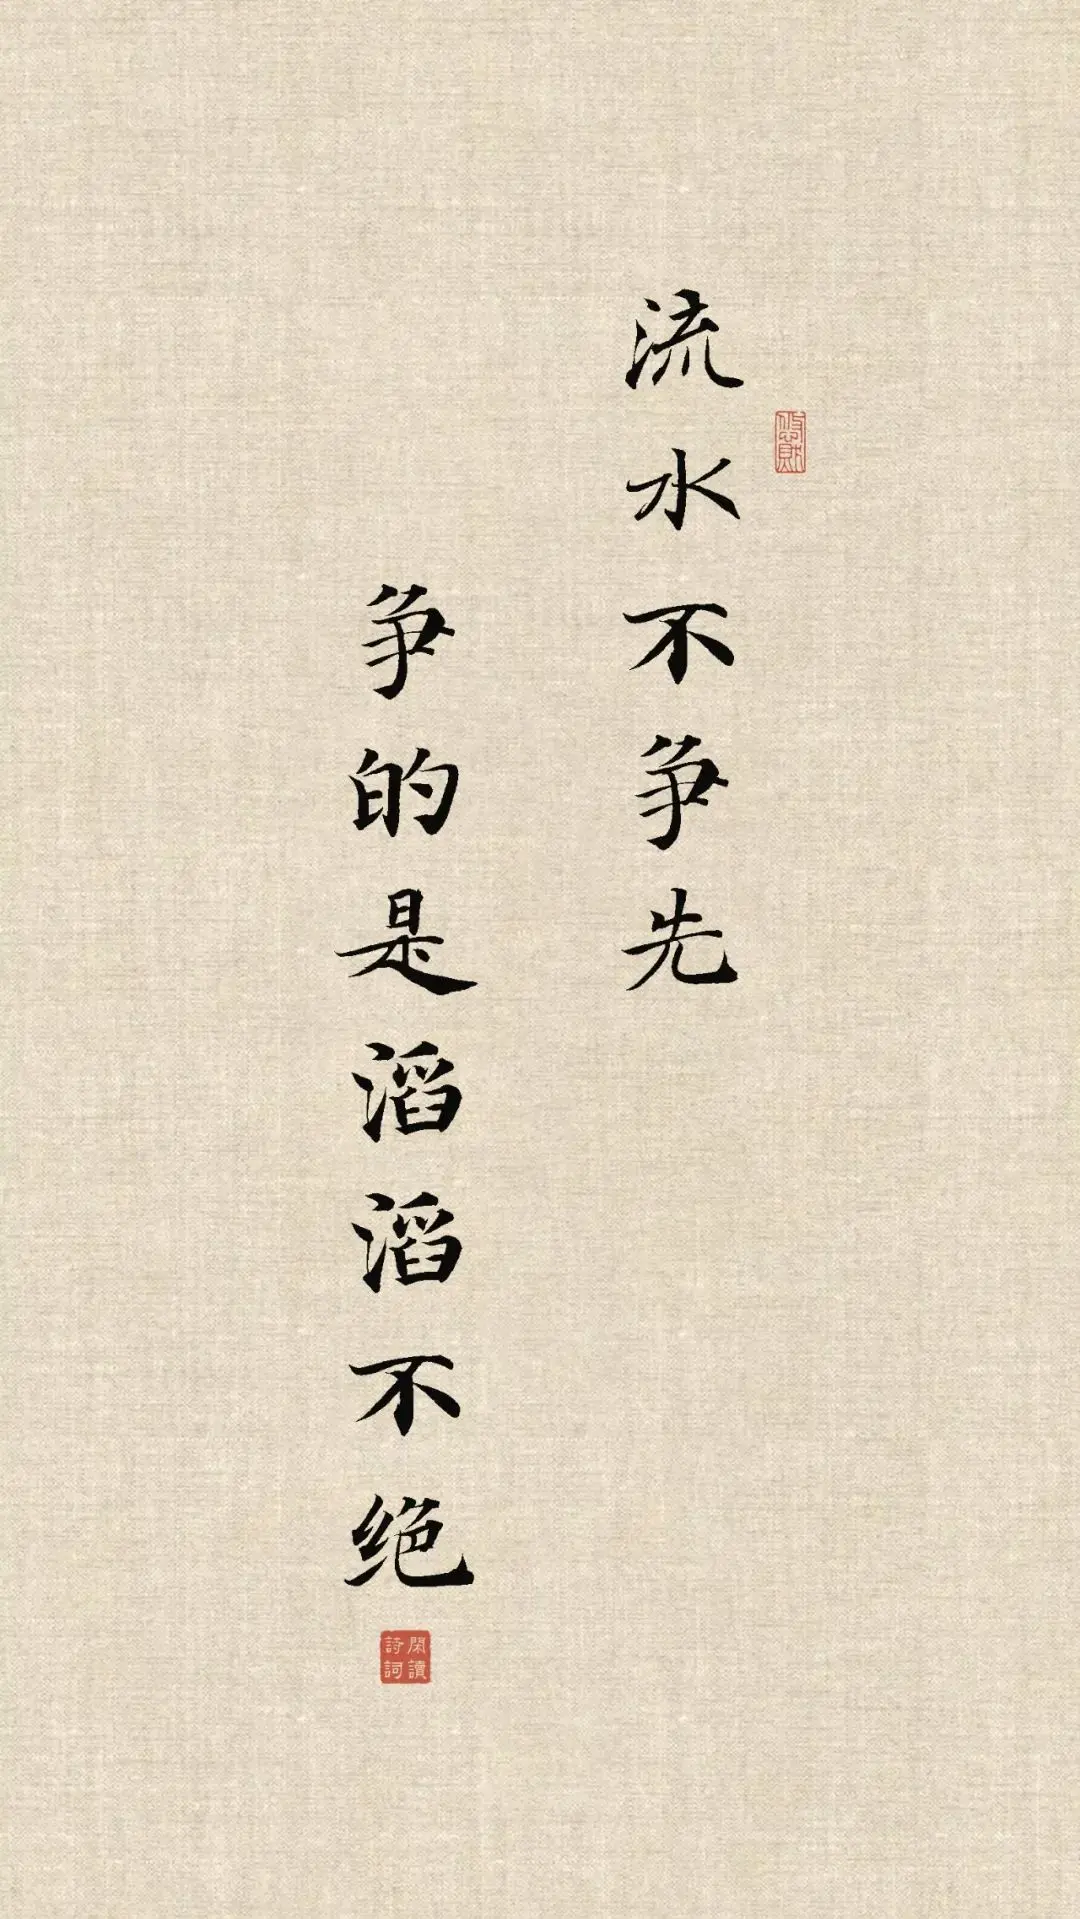 流水不争先
争的是滔滔不绝
閑讀
詩詞